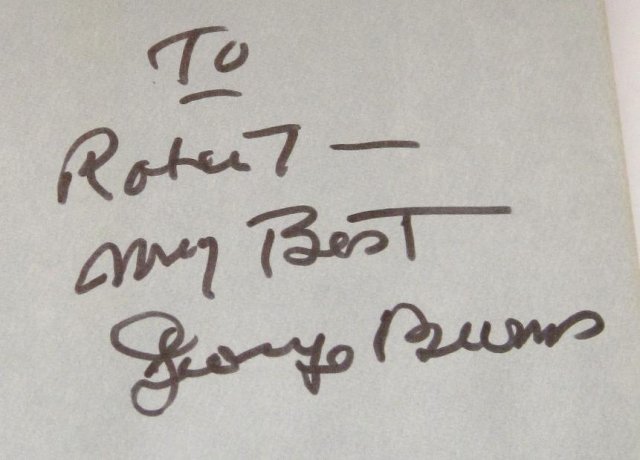 To
Robert —
My Best
George Burns